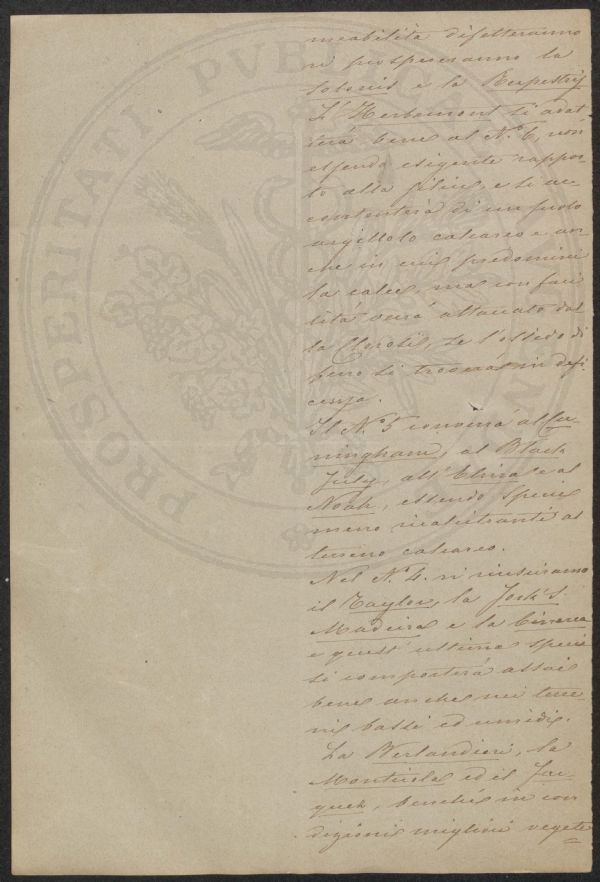 PROSPERITATI PVBLICAE
meabilità difetteranno
vi prospereranno la
Solonis e la Rupestris
L'Herbemont si adat
terà bene al N.º 6, non
essendo esigente rappor-
to alla silice, e si ac
contenterà di un suolo
argilloso calcareo e an-
che in cui predomini
la calce, ma con faci
lità verrà attaccato dal
la Clorosi, se l'ossido di
ferro si troverà in defi
cenza.
Il N.º 5 converrà al Cu-
ningham, al Black
July, all' Elvira e al
Noah, essendo specie
meno ricalcitranti al
terreno calcareo.
Nel N.º 4. vi riusciranno
il Taylor, la York's
Madeira e la Cinerea
e quest' ultima specie
si comporterà assai
bene anche nei terre
ni bassi ed umidi.
La Berlandieri, la
Monticola ed il Jac-
quez, benchè in con
dizioni migliori vegete